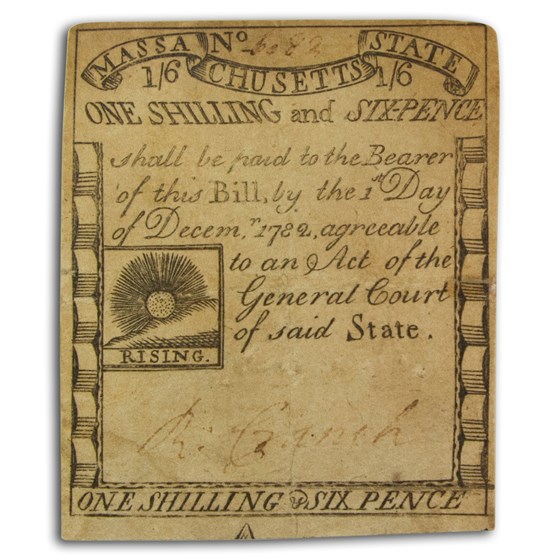 MASSACHUSETTS STATE
No
1/6 1/6
ONE SHILLING and SIX-PENCE
shall be paid to the Bearer
of this Bill, by the 1st Day
of Decem,r 1782, agreeable
to an Act of the
General Court
of said State.
RISING.
R. Cranch
ONE SHILLING & SIX PENCE